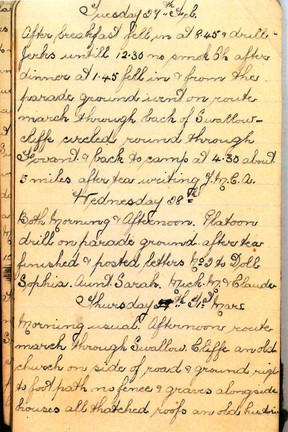 Tuesday 27th Feb.
After breakfast fell in at 8.45 & drill-
jerks untill 12.30 no smok Oh after
dinner at 1.45 fell in & from the
parade ground went on route
march through back of Swallow-
cliffe circled round through
Fovant & back to camp at 4.30 about
5 miles after tea writing Y.M.C.A.
Wednesday 28th
Both Morning & Afternoon. Platoon
drill on parade ground. after tea
finished & posted letters No 3 to Doll
Sophia. Aunt. Sarah. Mich. M. & Claude
Thursday 1st Mar
Morning usual. Afternoon route
march through Swallow Cliffe an old
church on side of road & ground right
to foot path no fence & graves alongside
houses all thatched roofs an old